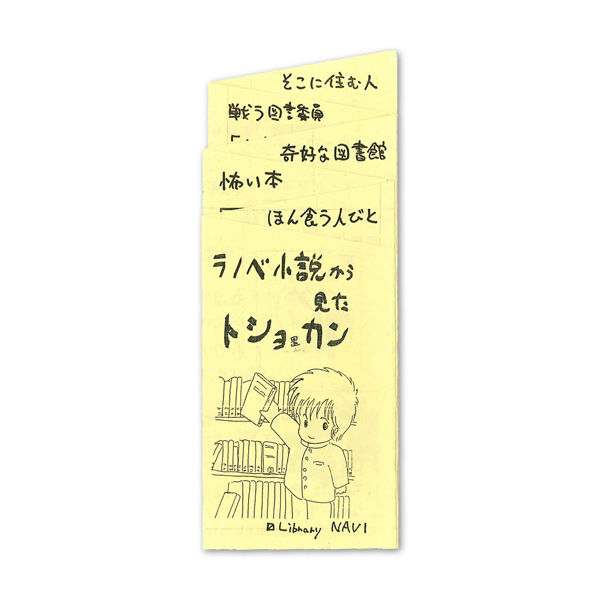 そこに住む人
戦う図書委員
奇好な図書館
怖い本
ほん食う人びと
ラノベ小説から
見た
トショカン
Library NAVI